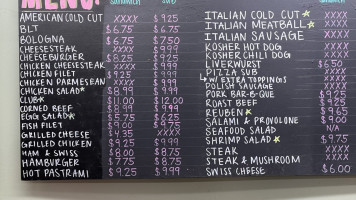 MENU!
SANDWICH SUB
AMERICAN COLD CUT XXXX $9.25
BLT $6.75 $6.75
BOLOGNA $6.75 $7.50
CHEESESTEAK XXXX $9.99
CHEESEBURGER $8.25 $9.25
CHICKEN CHEESESTEAK XXXX $9.99
CHICKEN FILET $9.25 $9.99
CHICKEN PARMESEAN XXXX $9.99
CHICKEN SALAD* $8.99 $9.99
CLUB* $11.00 $12.00
CORNED BEEF $8.99 $9.99
EGG SALAD* $5.75 $6.25
FISH FILET $9.00 $9.75
GRILLED CHEESE $4.35 XXXX
GRILLED CHICKEN $9.25 $9.99
HAM & SWISS $8.00 $8.75
HAMBURGER $7.75 $8.75
HOT PASTRAMI $9.25 $9.99
ITALIAN COLD CUT XXXX
ITALIAN MEATBALL XXXX
ITALIAN SAUSAGE XXXX
KOSHER HOT DOG
KOSHER CHILI DOG
LIVERWURST $6.50
PIZZA SUB XXXX
W/ EXTRA TOPPINGS XXXX
POLISH SAUSAGE XXXX
PORK BAR-B-QUE $9.25
ROAST BEEF $9.25
REUBEN* XXXX
SALAMI & PROVOLONE $9.00
SEAFOOD SALAD N/A
SHRIMP SALAD* $9.75
STEAK XXXX
STEAK & MUSHROOM XXXX
SWISS CHEESE $6.00